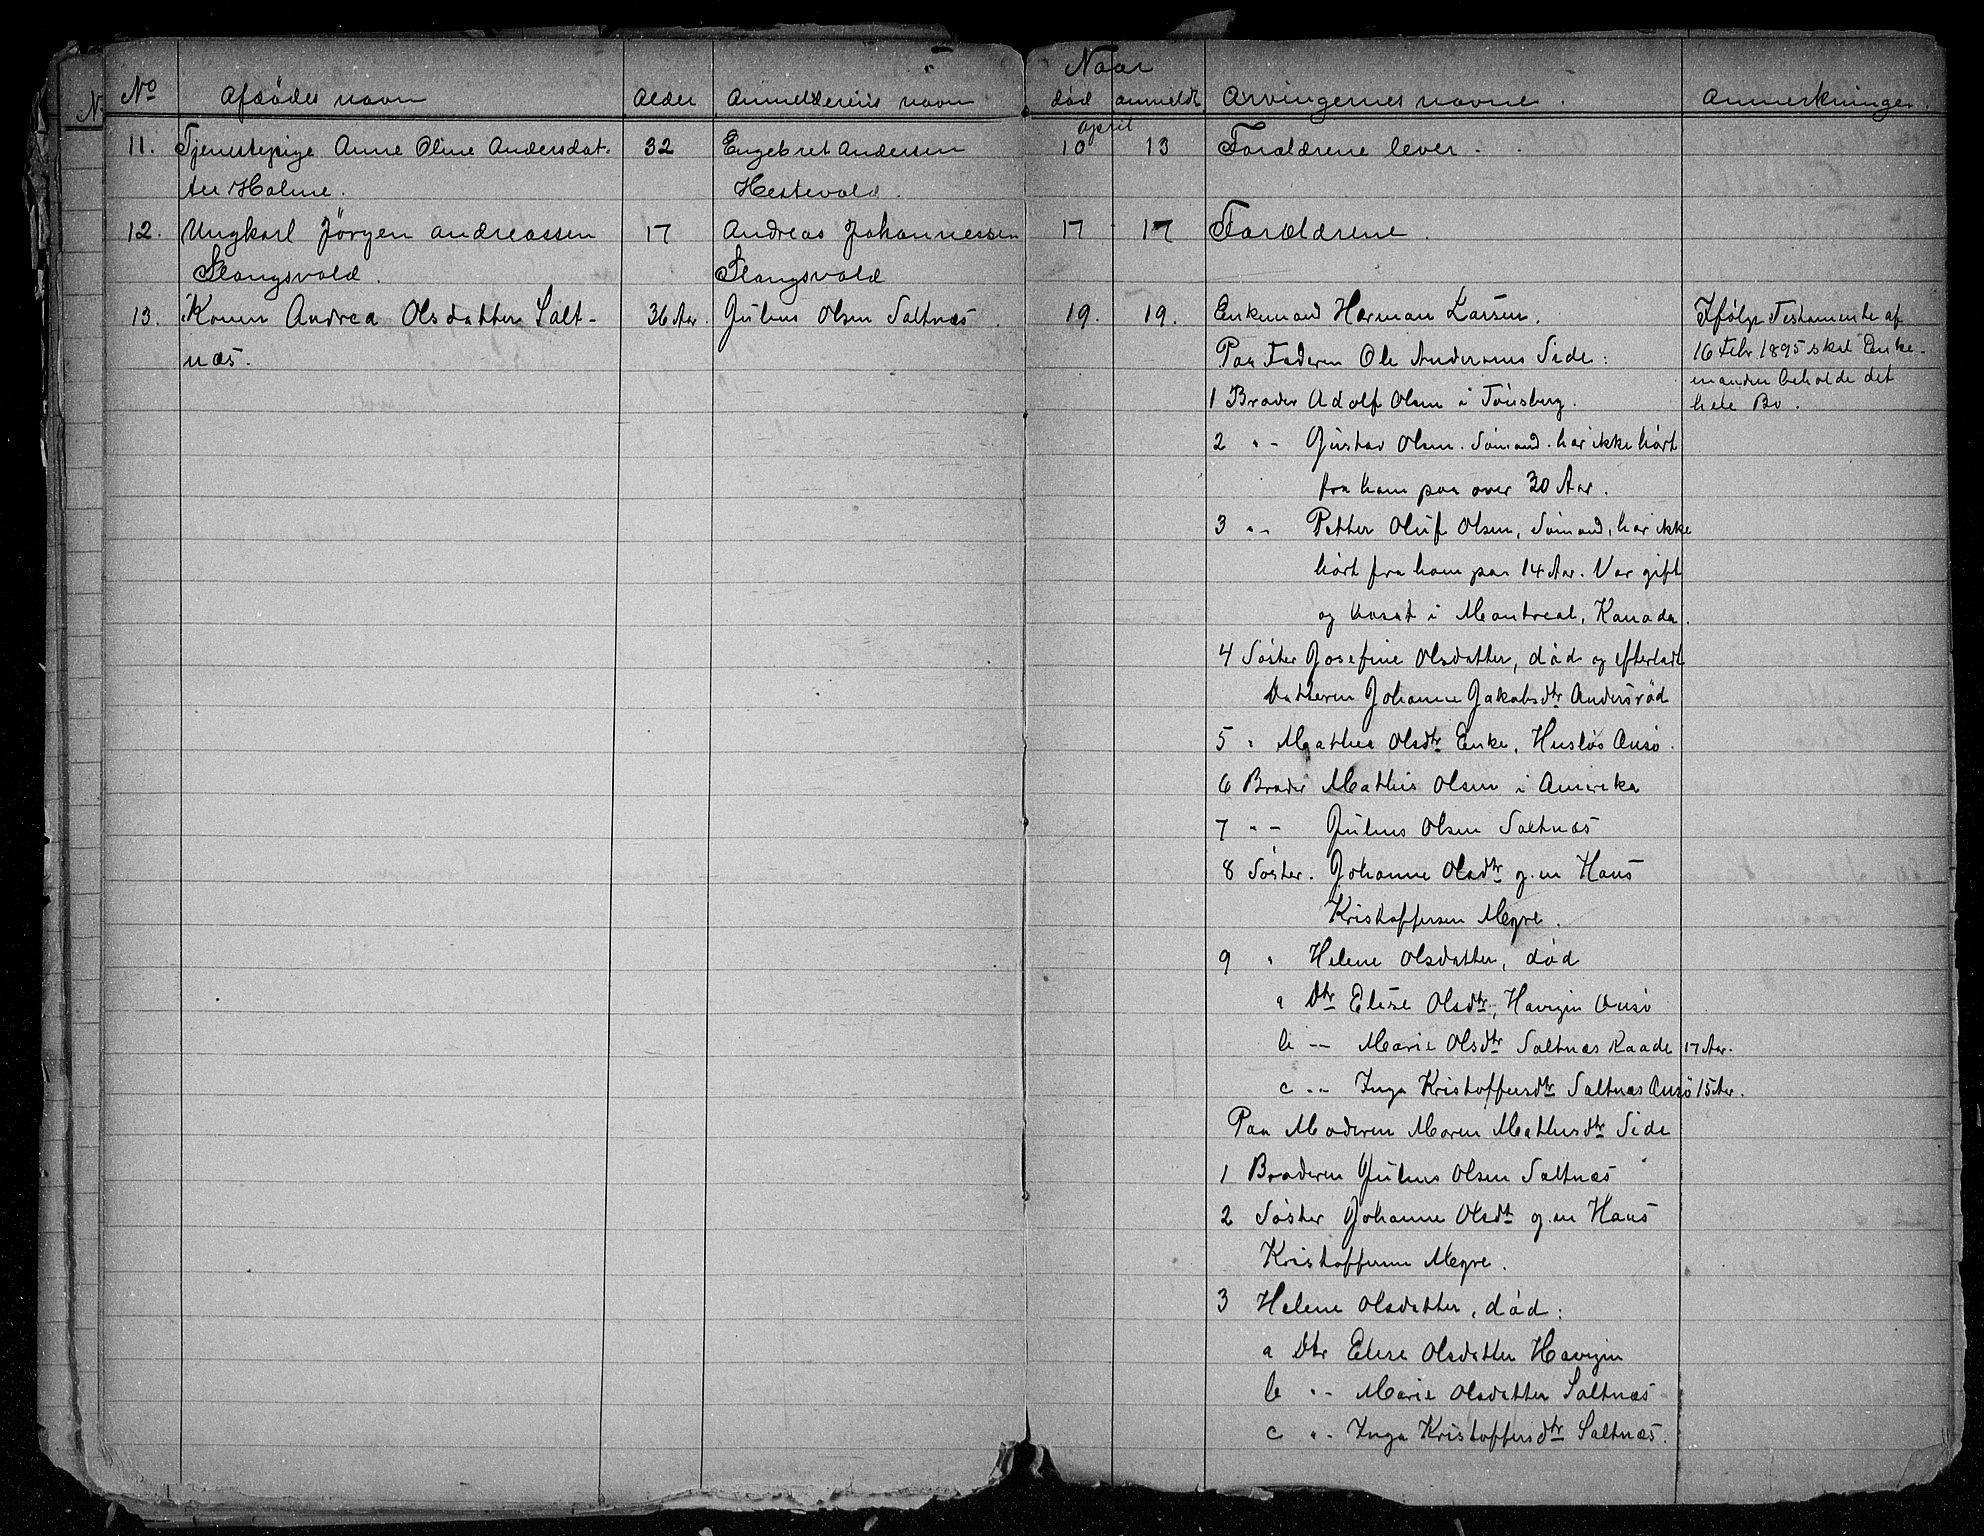 Naar
No Afdødes navn Alder Anmelderens navn død anmeldt Arvingernes navne. Anmerkninger.
N.
April
11. Tjenestepige Anne Oline Andersdat- 32 Engebret Andersen 10 13 Forældrene lever.
ter Holme. Hestevold.
12. Ungkarl Jörgen Andreassen 17 Andreas Johannessen 17 17 Forældrene.
Slangsvold. Slangsvold
13. Konen Andrea Olsdatter Salt- 36 Aar. Julius Olsen Saltnæs. 19. 19. Enkemand Herman Larsen. Ifølge Testamente af
næs. Paa Faderen Ole Andersens Side: 16 Febr 1895 skal Enke-
manden beholde det
1 Broder Adolf Olsen i Tönsberg. hele Bo.
2 " - Gustav Olsen. Sömand. har ikke hört
fra ham paa over 30 Aar.
3 " - Petter Oluf Olsen, Sömand, har ikke
hört fra ham paa 14 Aar. Var gift
og bosat i Montreal, Kanada.
4 Søster Josefine Olsdatter, död og efterladt
Datteren Johanne Jakobsdtr Andersröd
5 " Mathea Olsdtr Enke, Huslös Onsö.
6 Broder Mathis Olsen i Amerika
7 " - Julius Olsen Saltnæs
8 Söster. Johanne Olsdtr g. m Hans
Kristoffersen Megre.
9 " Helene Olsdatter, död
a Dtr Elise Olsdtr, Havigen Onsö
b " - Marie Olsdtr Saltnæs Raade 17 Aar.
c " - Inga Kristoffersdtr Saltnæs Onsö 15 Aar.
Paa Moderen Maren Mathisdtr Side
1 Broderen Julius Olsen Saltnæs
2 Söster Johanne Olsdt g. m Hans
Kristoffersen Megre.
3 Helene Olsdatter, död:
a Dtr Elise Olsdatter Havigen
b " - Marie Olsdatter Saltnæs
c " - Inga Kristoffersdtr Saltnæs.